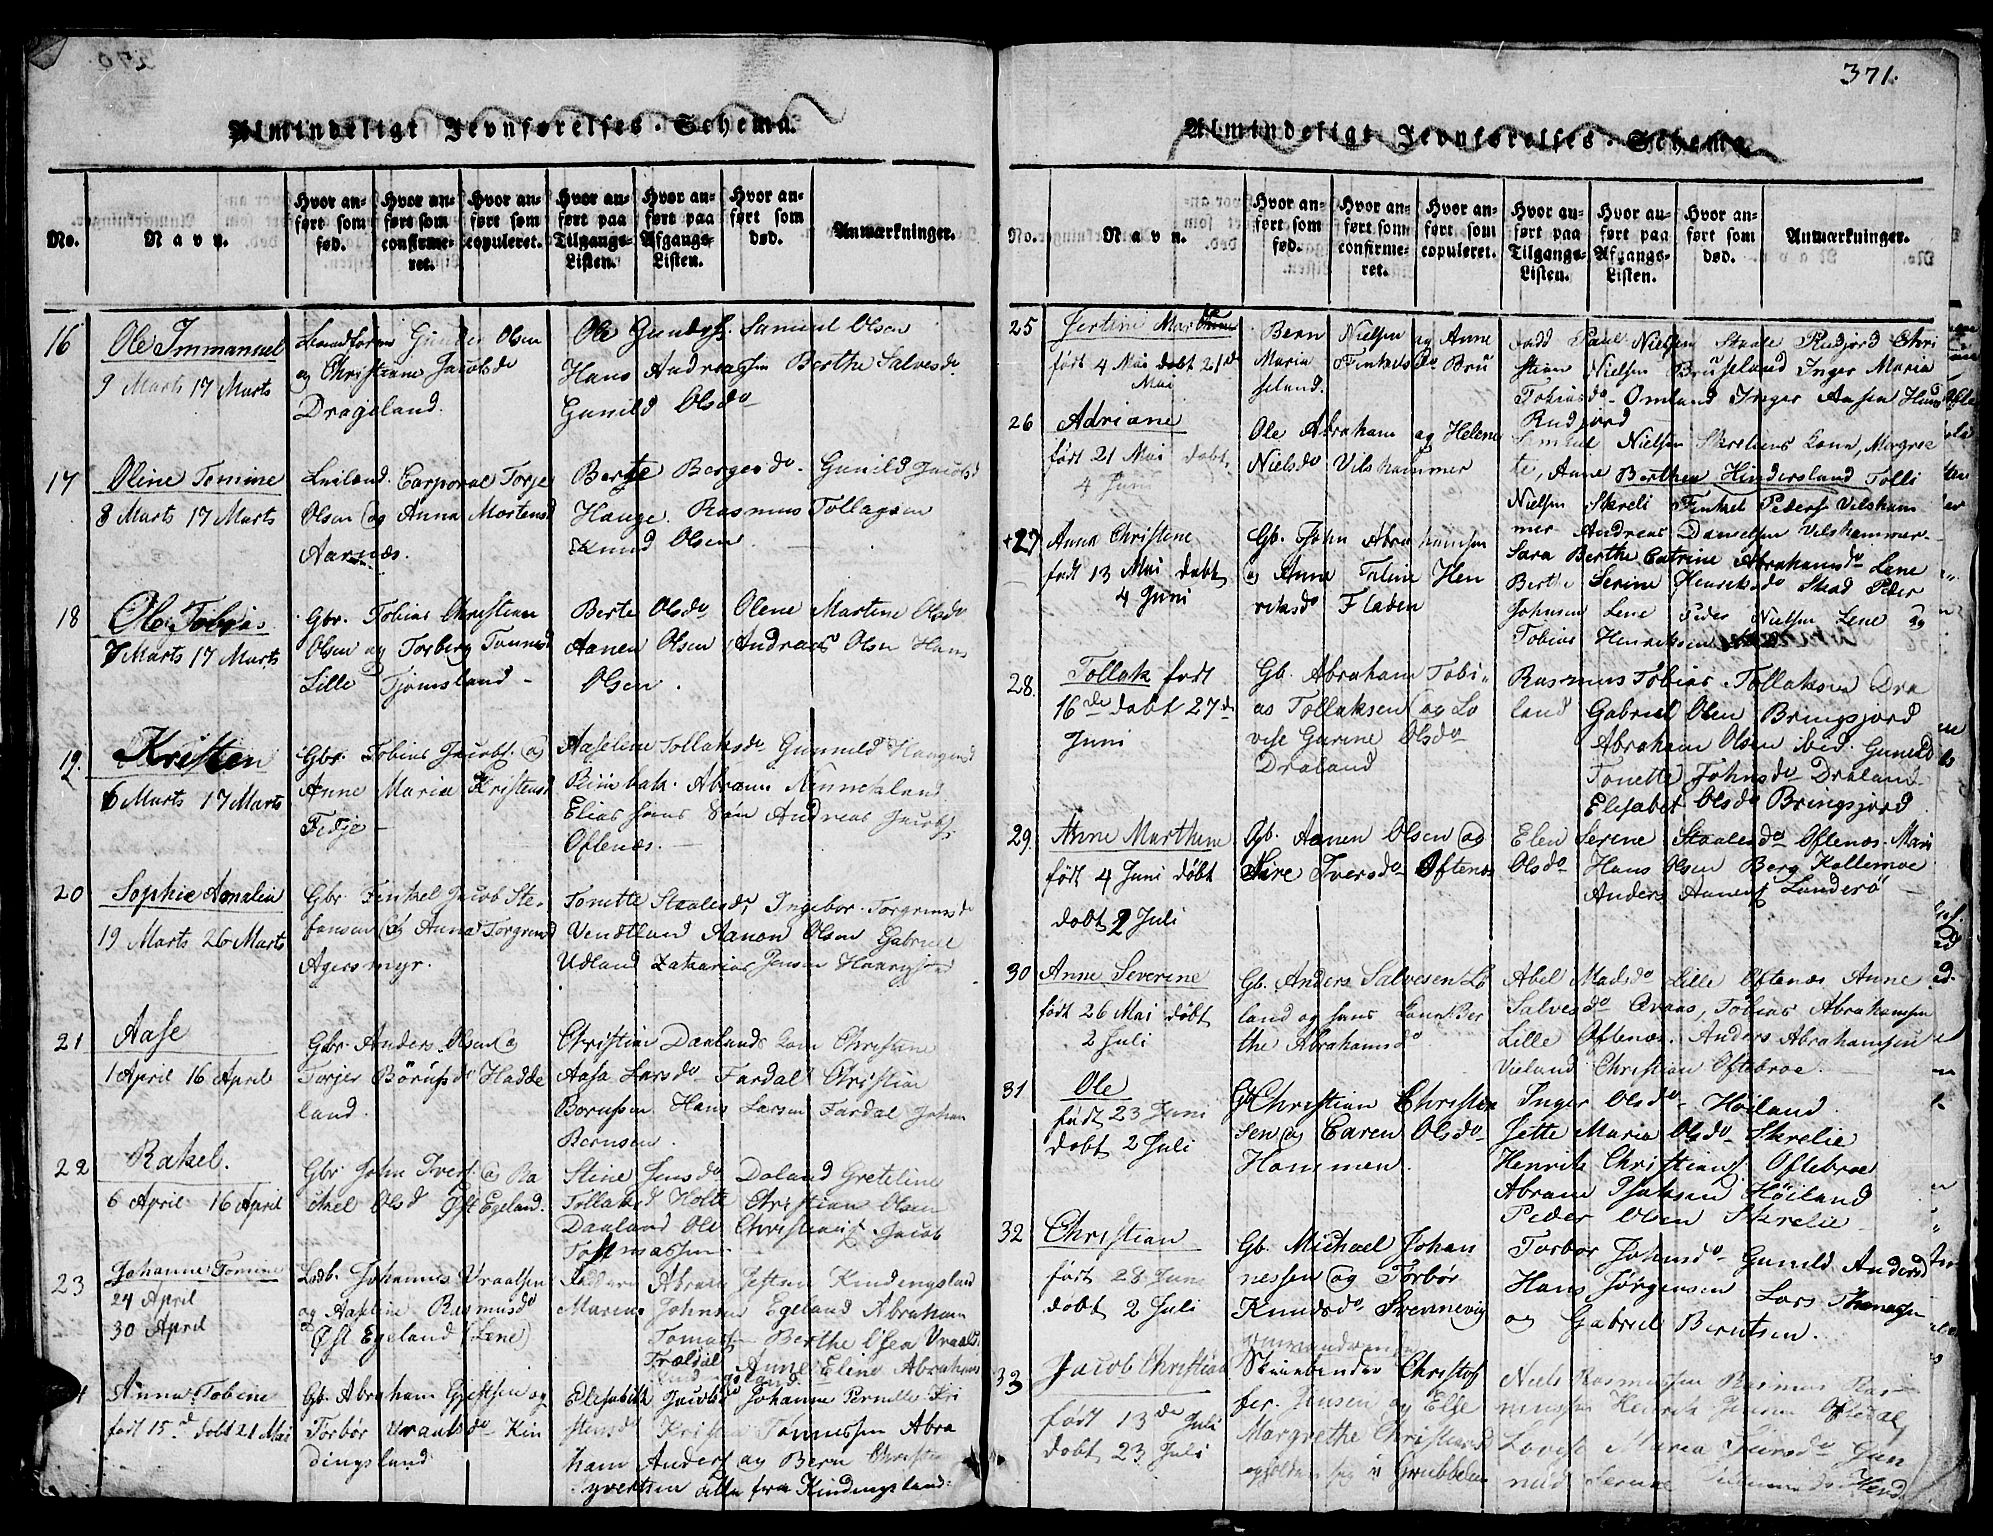 371.
Almindeligt Jevnførelses-Schema.
No.
Navn.
Hvor anført som fød.
Hvor anført som confirmeret.
Hvor anført som copuleret.
Hvor anført paa Tilgangs-Listen.
Hvor anført paa Afgangs-Listen.
Hvor anført som død.
Anmærkninger.
16 Ole Immanuel
9 Marts 17 Marts
Gunder Olsen
og Christiane Jacobsdr
Drageland.
Ole Gunders. Samuel Olsen
Hans Andreasen Berthe Salvesdr
Gunild Olsdr
17 Oline Tomine
8 Marts 17 Marts
Corporal Torje
Olsen og Anna Mortensd
Aarnæs.
Berte Bergesdr. Gunild Jacobsd
Hauge. Rasmus Tollagsen
Knud Olsen
18 Ole Tobias
7 Marts 17 Marts
Gbr. Tobias Christian
Olsen og Torberg Tønnesd
Lille Tjømsland
Berte Olsdr Olene Martine Olsdr
Aanen Olsen Andreas Olsen Hans
Olsen.
19. Kristen
6 Marts 17 Marts
Gbr. Tobias Jacobs. og
Anne Maria Kristensd
Fidje
Aaselene Tollaksdr Gunnild Haagensd
Abram
Elias hans Søn Andreas Jacobs.
Oftenæs.
20 Sophie Amalia
19 Marts 26 Marts
Gbr. Finkel Jacob Ste-
fansen og Anna Torgrimsd
Agersmyr.
Tonette Staalesdr, Ingebor Torgrimsdr
Vendtland Aanon Olsen Gabriel
Udland Zakarias Jensen
21 Aase
1 April 16 April
Gbr. Anders Olsen og
Torjer Børufsdr Hadde
land.
Christian Daalands Kone Christine
Aasa Larsdr Fardal Christian
Borufsen Hans Larsen Fardal Johan
Berntsen.
22 Rakel.
6 April 16 April
Gbr. John Ivers. og Ra
chel Olsd Øst Egeland.
Stine Jensdr Daland Greteline
Tollaksd Holte Christian Olsen
Daaland Ole Christians. Jacob
Tommassen.
23 Johanne Tomine
24 April
30 April
Ladb. Johannes Vraalsen
og Aaseline Rasmusdr
Øst Egeland (Lene)
Abram Jesten Kindingsland
Marcus Johnsen Egeland Abraham
Tomass. Berthe Elsea Vraalsd
Trældal Anne Elene Abrahams
Anna Tobine
født 15d. døbt 21 Mai
Gb. Abraham Gjertsen og
Torbør Vraalsdr Kin
dingsland
Elisabeth Jacobsdr Johanne Pernille Kri
stensdr Kristen Tønnessen Abra
ham Anders. og Bern Christen
Syvertsen alle fra Kindingsland.
Almindeligt Jevnførelses-Schema.
No.
Navn.
Hvor anført som fød.
Hvor anført som confirmeret.
Hvor anført som copuleret.
Hvor anført paa Tilgangs-Listen.
Hvor anført paa Afgangs-Listen.
Hvor anført som død.
Anmærkninger.
25 Jertine Marthine
født 4 Mai døbt 21de
Mai
Bern Nielsen og Anne
Maria Finkelsdr Bru
seland.
Fadd Paul Nielsen Staale Rudjord Chri
stian Nielsen Bruseland Inger Maria
Tobiasdr Omland Inger Aasea Hans
Rudjord
26 Adriane
født 21 Mai døbt
4 Juni
Ole Abraham og Helene
Nielsdr Vilshammer
Samuel Nielsen Skreliens Kone, Margree
te, Anne Berthea Hindersland Tolli
Nielsen Skreli Finkel Peders. Vilsham
mer Andreas Danielsen Vilshammer
+27 Anna Christene
født 13 Mai døbt
4 Juni
Gb. John Abrahamsen
og Anne Taline Hen
riksdr Fladen
Sara Berthe Catrine Abrahamsdr Lene
Berthe Serine Henriksdr Skad Peder
Johnsen Lene Peder Nielsen Lene og
Tobias Henriksen
28. Tollak født
16de døbt 27de
Juni
Gb. Abraham Tobi-
as Tollaksen og Lo
vise Gurine Olsdr
Draland
Rasmus Tobias Tollaksen Dra
land Gabriel Olsen Bringsjord
Abraham Olsen ibid. Gunild
Tonette Johnsdr Draland
Elisabet Olsdr Bringsjord
29. Anne Marthene
født 4 Juni døbt
døbt 2 Juli
Gb. Aanen Olsen og
Sire Iversdr Oftenæs
Elen Serene Staalesdr Oftenæs. Mari
Olsdr Hans Olsen Berg Kollemoe
Anders Aanens. Landerö
30 Anne Severine
født 26 Mai døbt
2 Juli
Gb. Anders Salvesen Lö
land og hans Kone Ber
the Abrahamsdr
Abel Madsdr Lille Oftenæs Anne
Salvesdr Qvaas, Tobias Abrahamsen
Lille Oftenæs. Anders Abrahamsen
Vieland Christian Oftebroe.
31 Ole
født 23 Juni
døbt 2 Juli
Gb Christian Christen
sen og Caren Olsdr
Hommen.
Inger Olsdr Höiland
Jette Maria Olsdr Skrelie
Henrik Christians. Oftebroe
Abram Isaksen Höiland
Peder Olsen Skrelie
32 Christian
født 28 Juni
døbt 2 Juli
Gb. Michael Johan
nessen og Torbør
Knudsdr Svennevig
Torbor Johnsdr Gunild Andersd
Hans Jørgensen Lars Thomasen
og Gabriel Berntsen.
33 Jacob Christian
født 13de Juli
døbt 23 Juli
Skindbereder Christof
fer Jensen og Else
Margrethe Christiansd
opholder sig i Grubbelie
Niels Rasmussen Rasmus Ras-
mussen Henrik Jensen Oftedal
Lovise Maria Iversdr Gun
nild Serine